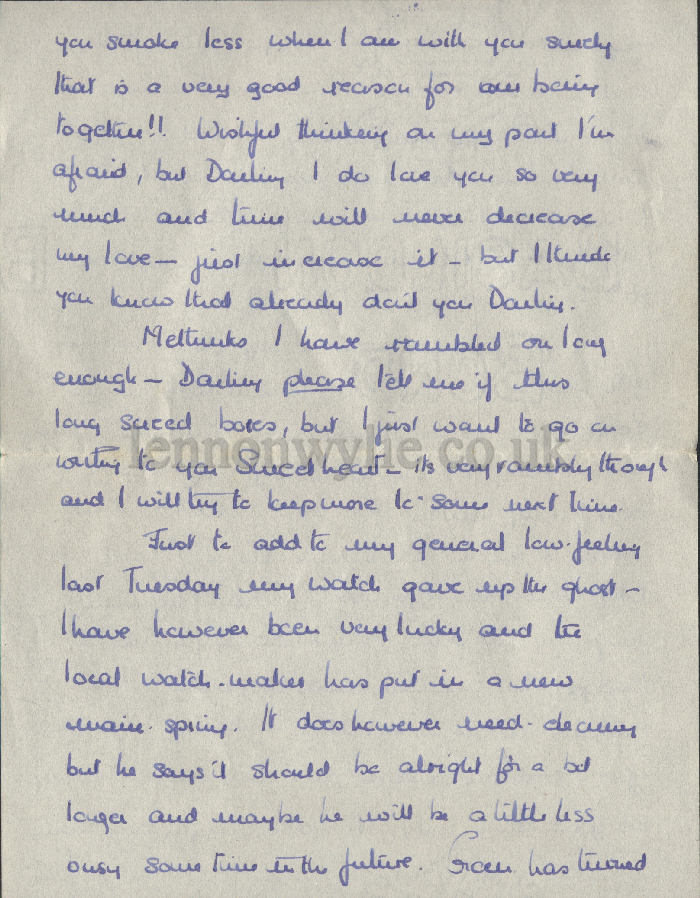 you smoke less when I am with you surely
that is a very good reason for our being
together!! Wishful thinking on my part I'm
afraid, but Darling I do love you so very
much and time will never decrease
my love – just increase it – but I think
you know that already don't you Darling.
Methinks I have rambled on long
enough – Darling please tell me if this
long screed bores, but I just want to go on
lennonwylie.co.uk
writing to you Sweetheart – its very rambly though
and I will try to keep more to same next time.
Just to add to my general low-feeling
last Tuesday my watch gave up the ghost –
I have however been very lucky and the
local watch-maker has put in a new
main-spring. It does however need cleaning
but he says it should be alright for a bit
longer and maybe he will be a little less
busy some time in the future. has turned